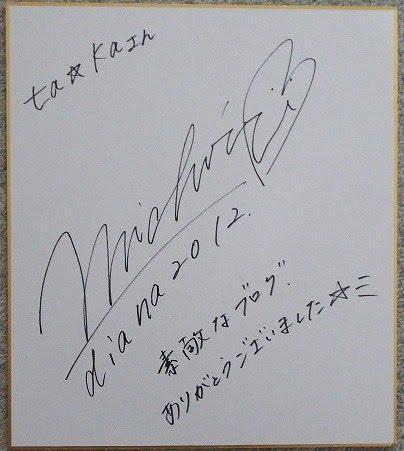 ta☆Kaさん
diana 2012.
素敵なブログ、
ありがとうございました☆ミ